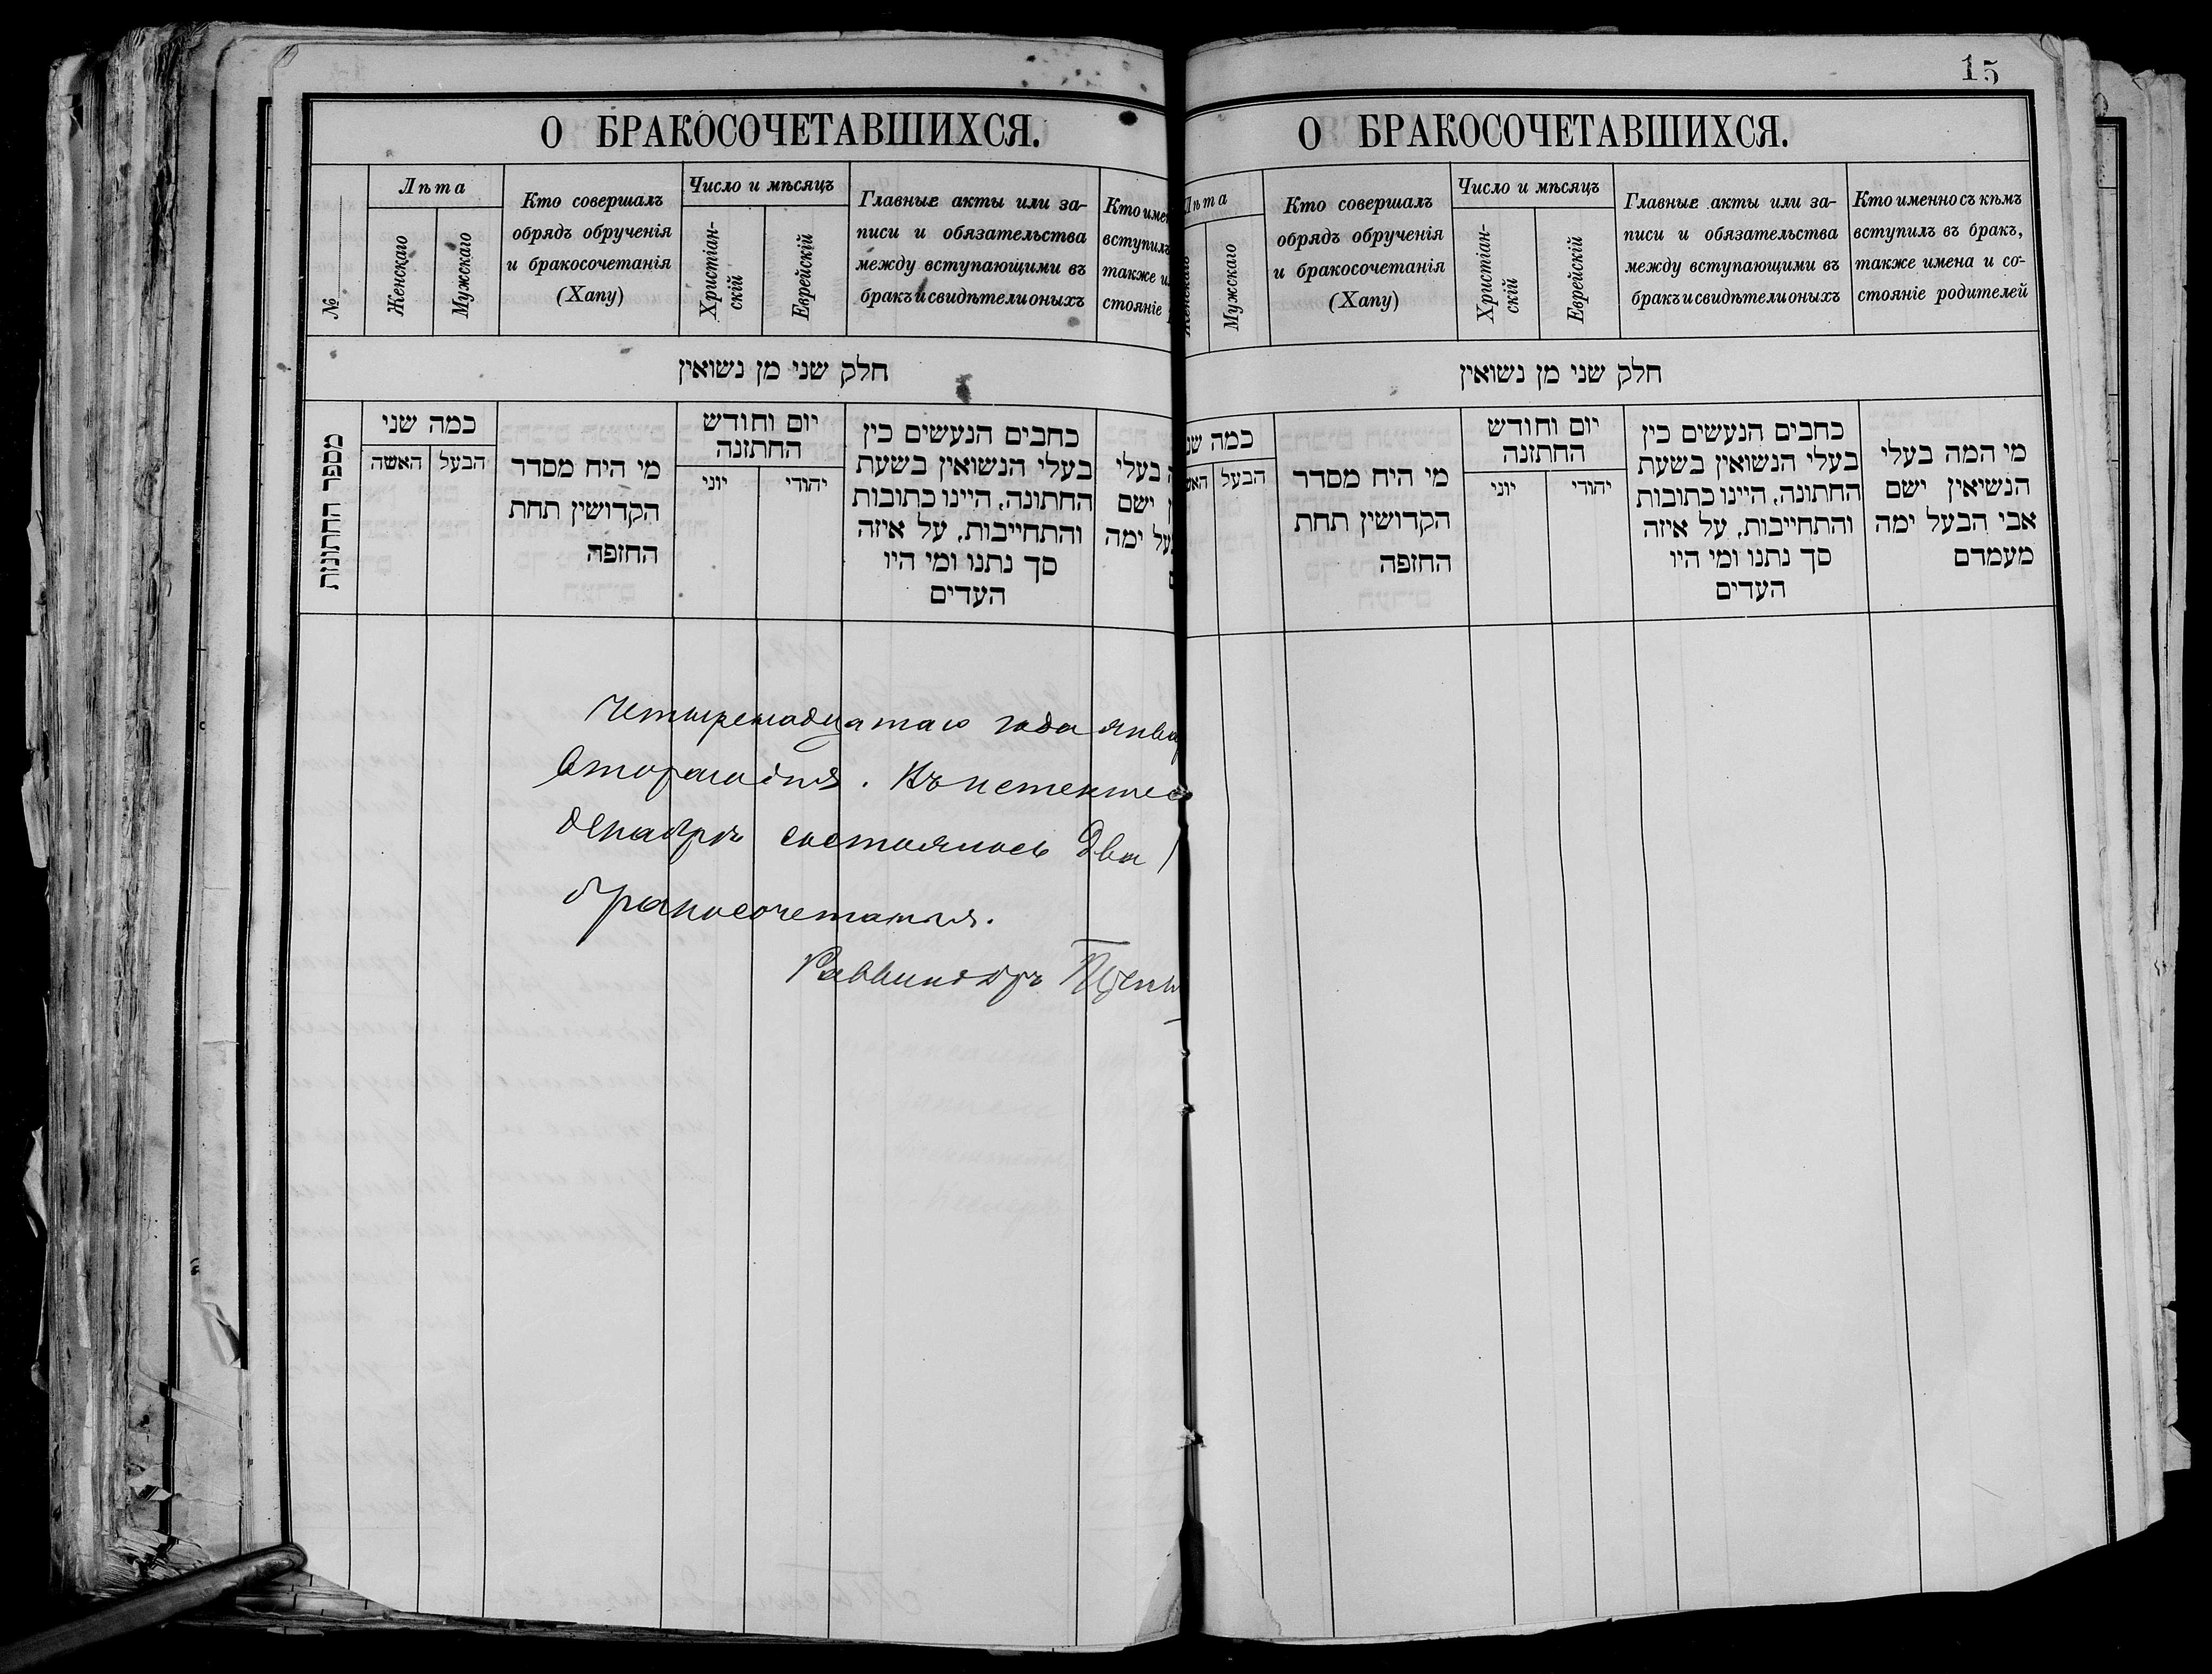 О БРАКОСОЧЕТАВШИХСЯ.
№
Лѣта
Женскаго
Мужскаго
Кто совершалъ
обрядъ обрученія
и бракосочетанія
(Хапу)
Число и мѣсяцъ
Христіан-
скій
Еврейскій
Главные акты или за-
писи и обязательства
между вступающими въ
бракъ и свидѣтели оныхъ
Кто име
вступилъ
также и
стояніе
חלק שני מן נשואין
מספר החתונות
כמה שני
האשה
הבעל
מי היח מסדר
הקדושין תחת
החופה
יום וחודש
החתונה
יוני
יהודי
כתבים הנעשים בין
בעלי הנשואין בשעת
החתונה, היינו כתובות
והתחייבות, על איזה
סך נתנו ומי היו
העדים
בעלי
ישם
על ימה
Четыренадцатаго года янва
втораго дня. Въ истекше
декабрѣ состоялось два
бракосочетанія.
Раввинъ
15
О БРАКОСОЧЕТАВШИХСЯ.
Лѣта
Женскаго
Мужскаго
Кто совершалъ
обрядъ обрученія
и бракосочетанія
(Хапу)
Число и мѣсяцъ
Христіан-
скій
Еврейскій
Главные акты или за-
писи и обязательства
между вступающими въ
бракъ и свидѣтели оныхъ
Кто именно съ кѣмъ
вступилъ въ бракъ,
также имена и со-
стояніе родителей
חלק שני מן נשואין
כמה שנ
האש
הבעל
מי היח מסדר
הקדושין תחת
החופה
יום וחודש
החתונה
יוני
יהודי
כתבים הנעשים בין
בעלי הנשואין בשעת
החתונה, היינו כתובות
והתחייבות, על איזה
סך נתנו ומי היו
העדים
מי המה בעלי
הנשיאין ישם
אבי הבעל ימה
מעמדם